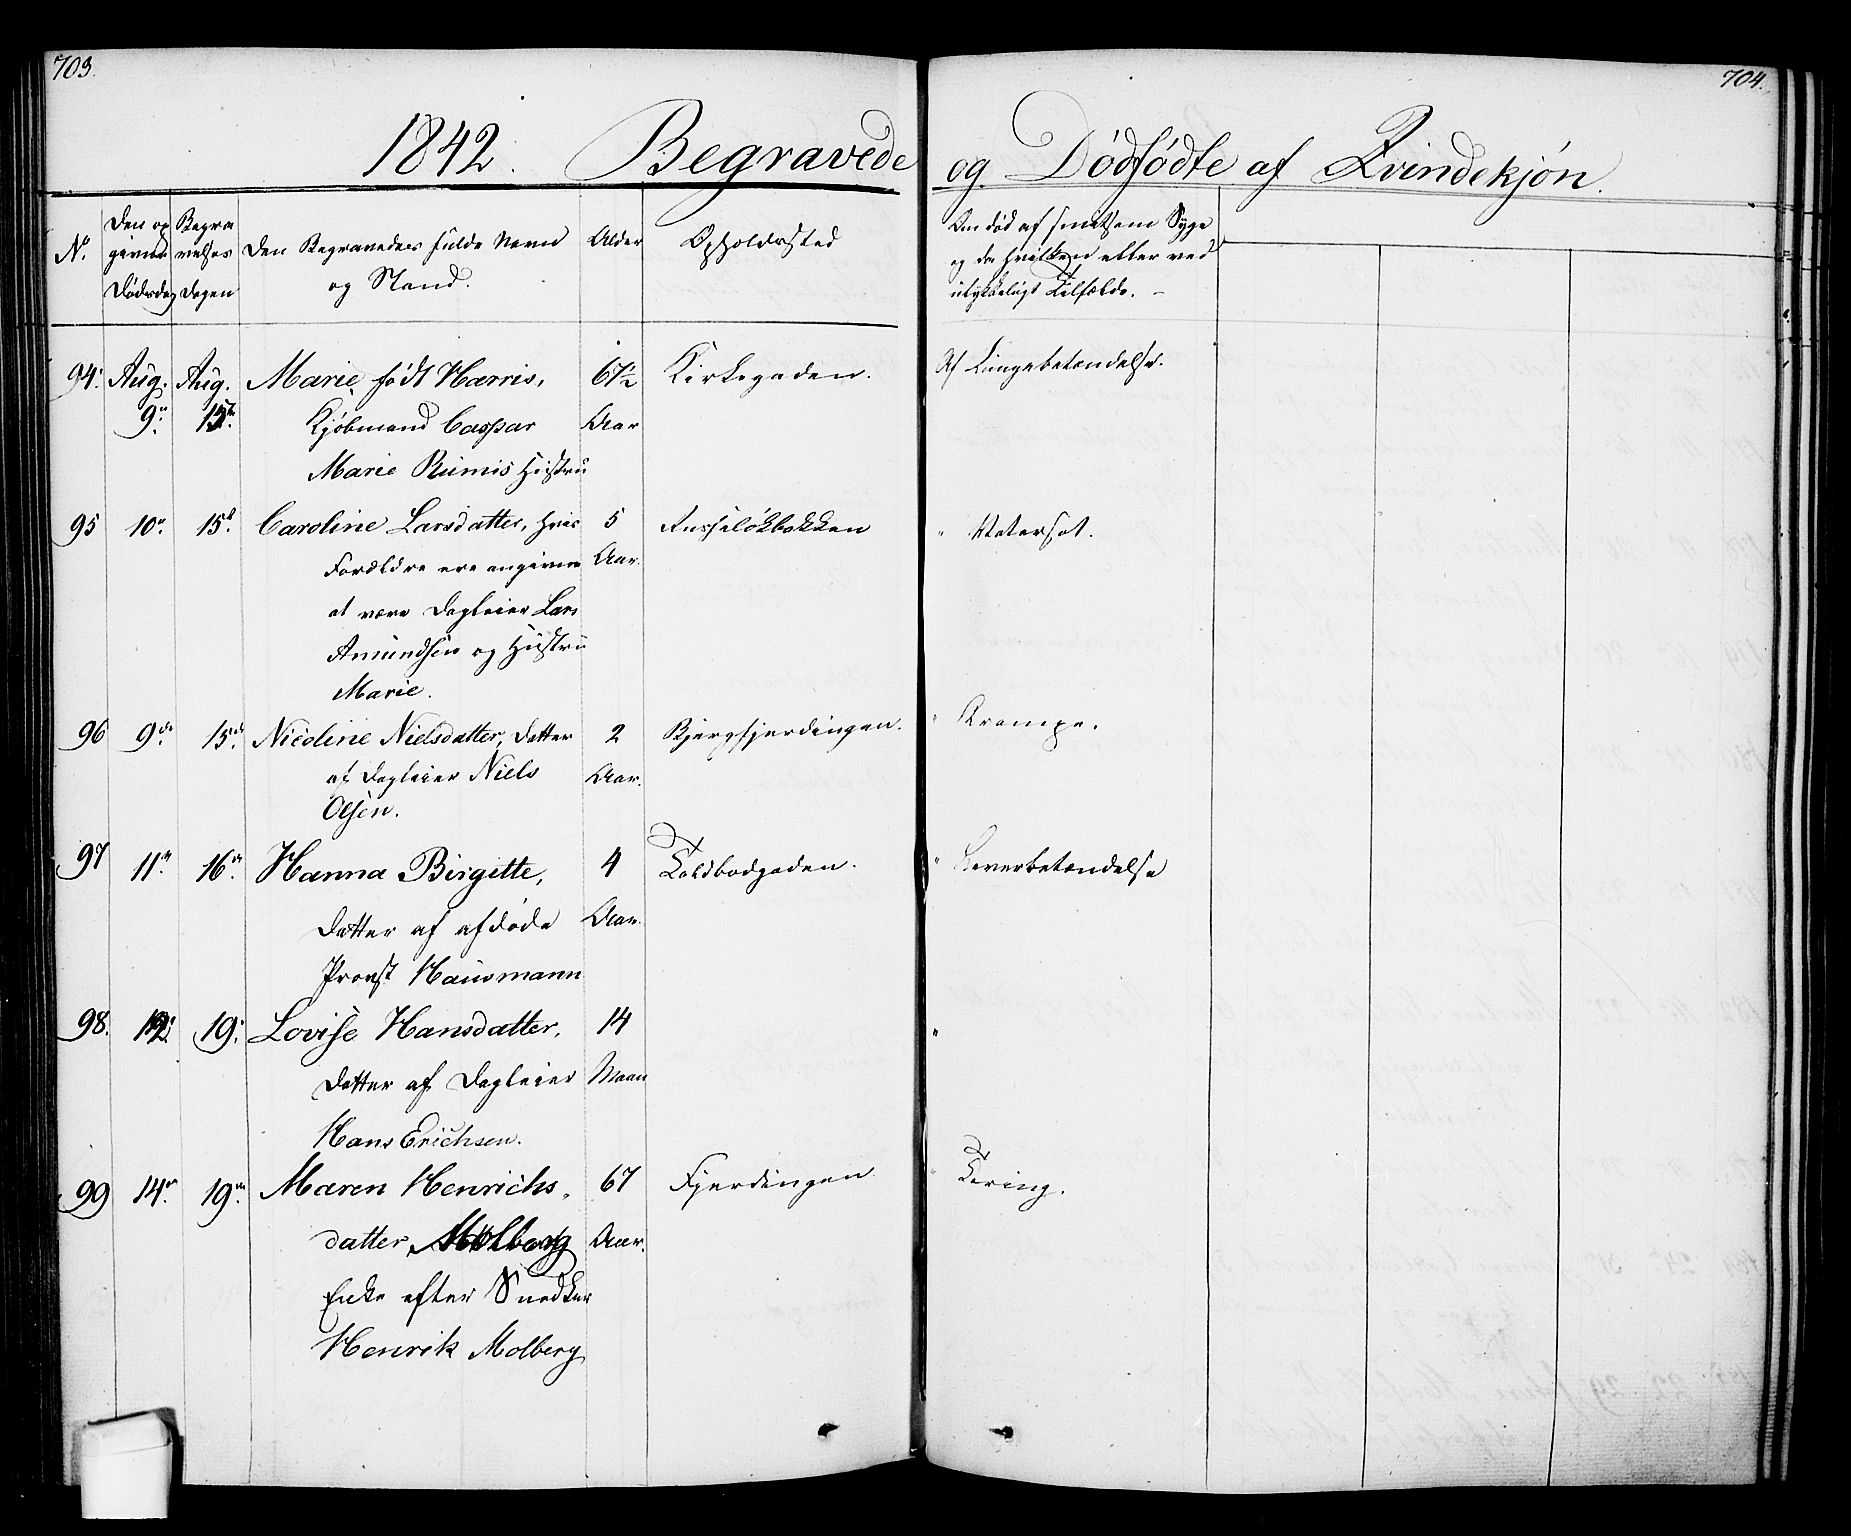 703.
704.
1842. Begravede og Dødfødte af Qvindekjøn.
No.
Den opgivne Dødsdag
Begravelses Dagen
Den Begravedes fulde Navn og Stand.
Alder
Opholdssted
Om død af smitsom Syge
og da hvilken eller ved
ulykkeligt Tilfælde. –
94. Aug. Aug. Marie, født Harris, 67½ Kirkegaden. Af Lungebetændelse.
9. 15. Kjøbmand Caspar Aar
Marie Rumis Hustru
95 10. 15. Caroline Larsdatter, hvis 5 " Vatersot.
Forældre ere angivne Aar.
at være Dagleier Lars
Amundsen og Hustru
Marie.
96 9de 15de Nicoline Nielsdatter, Datter 2 Bjergfjerdingen. " Krampe.
af Dagleier Niels Aar.
Olsen.
97 11. 16. Hanna Birgitte, 4 Toldbodgaden. " Leverbetændelse
Datter af afdøde Aar.
Provst Hausmann
98. 12. 19. Lovise Hansdatter, 14 "
Datter af Dagleier Maan
Hans Erichsen.
99 14. 19. Maren Henrichs- 67 Fjerdingen " Tæring.
datter, Molberg Aar.
Enke efter Snedker
Henrik Molberg